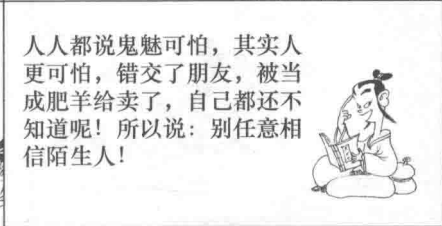 人人都说鬼魅可怕，其实人
更可怕，错交了朋友，被当
成肥羊给卖了，自己都还不
知道呢！所以说：别任意相
信陌生人！